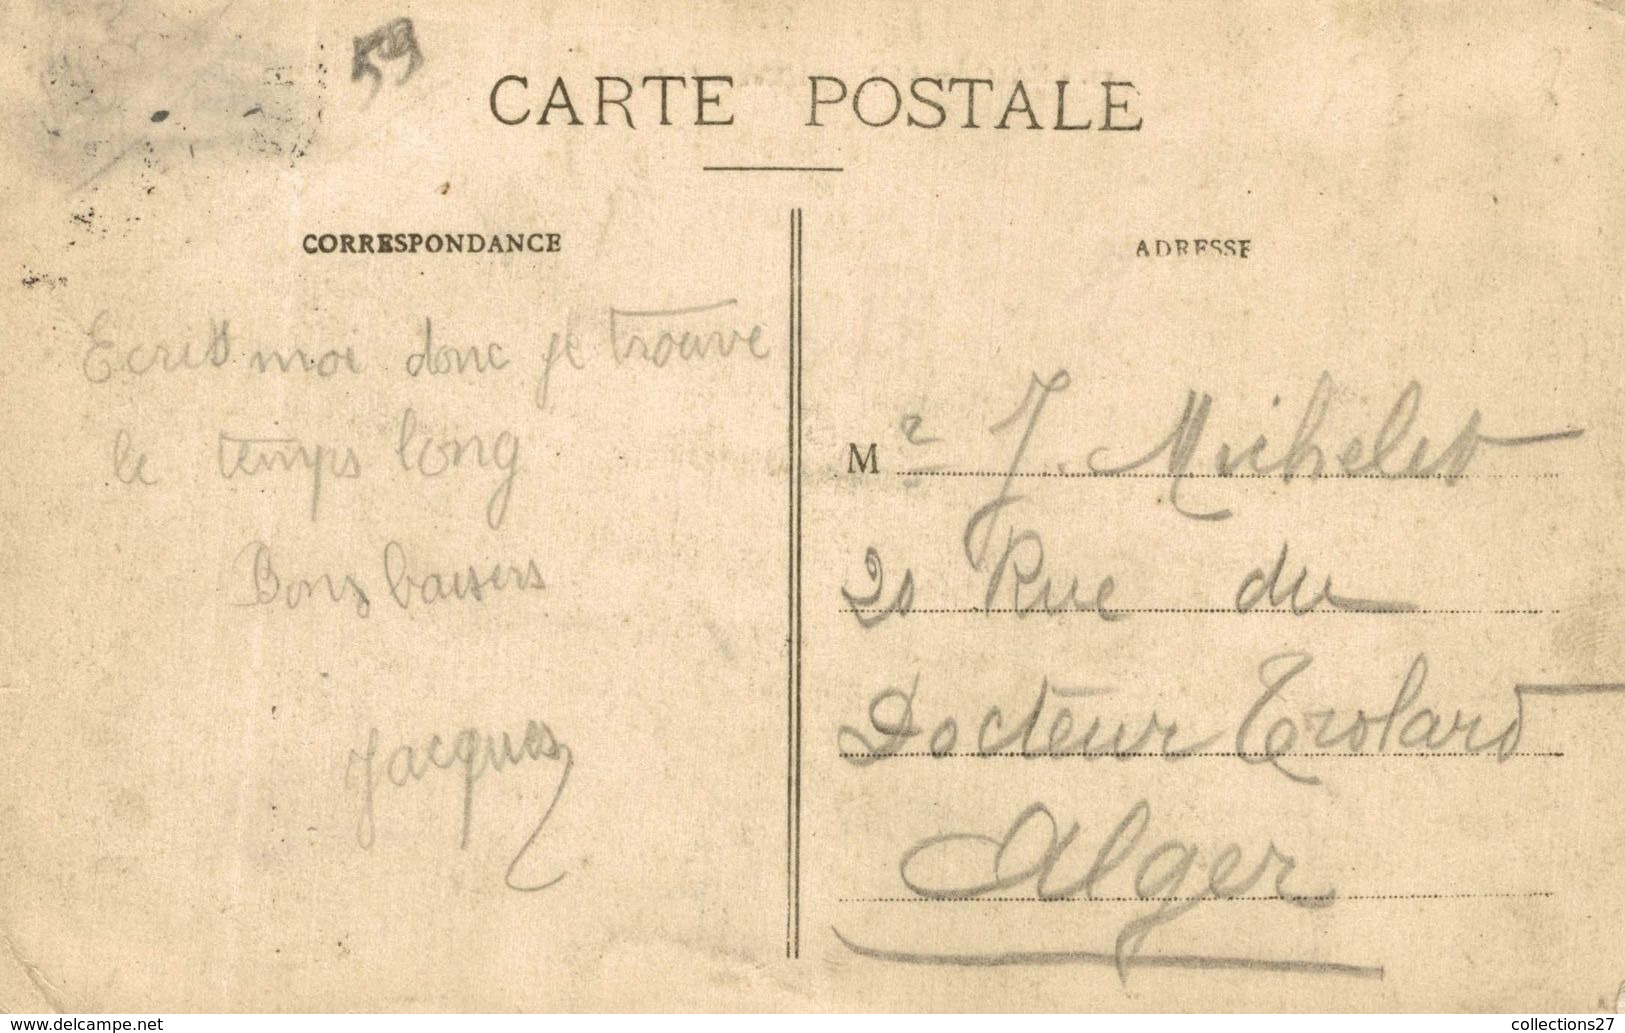 59
CARTE POSTALE
CORRESPONDANCE
Ecris moi donc je trouve
le temps long
Bons baisers
Jacques
ADRESSE
Mr J. Michelet
20 Rue du
Docteur Trolard
Alger
www.delcampe.net
collections27